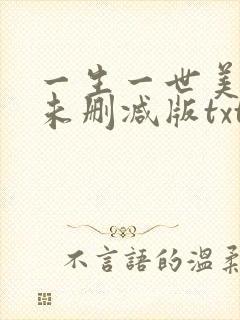 一生一世美
未删减版txt
不言語的温柔